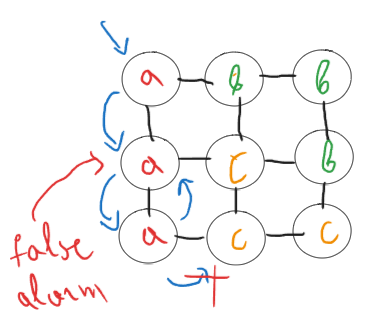 a b b
a c b
a c c
false
alarm